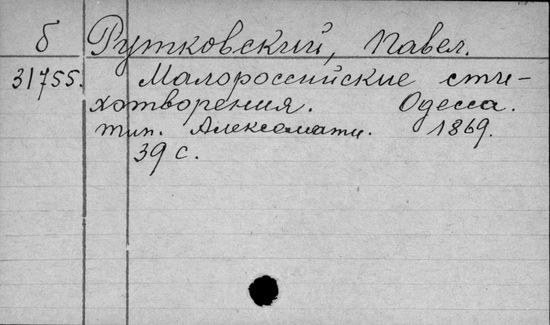 б Рутковский, Павел.
31755. Малороссийские сти-
хотворения. Одесса.
тип. Алексомати. 1869.
39 с.